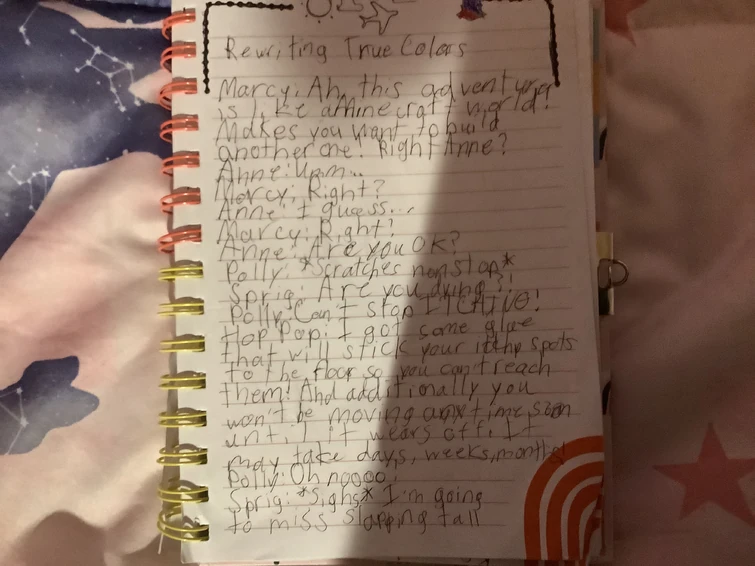 Rewriting True Colors
Marcy: Ah, this adventurer
is like a Minecraft world!
Makes you want to build
another one! Right Anne?
Anne: Uhm...
Marcy: Right?
Anne: I guess...
Marcy: Right?
Anne: Are you OK?
Polly: *Scratches nonstop*
Sprig: Are you dying?!
Polly: Can't stop ITCHING!
Hop Pop: I got some glue
that will stick your itchy spots
to the floor so you can't reach
them! And additionally you
won't be moving anytime soon
until it wears off. It
may take days, weeks, months!
Polly: Oh noooo!
Sprig: *Sighs* I'm going
to miss slapping tall